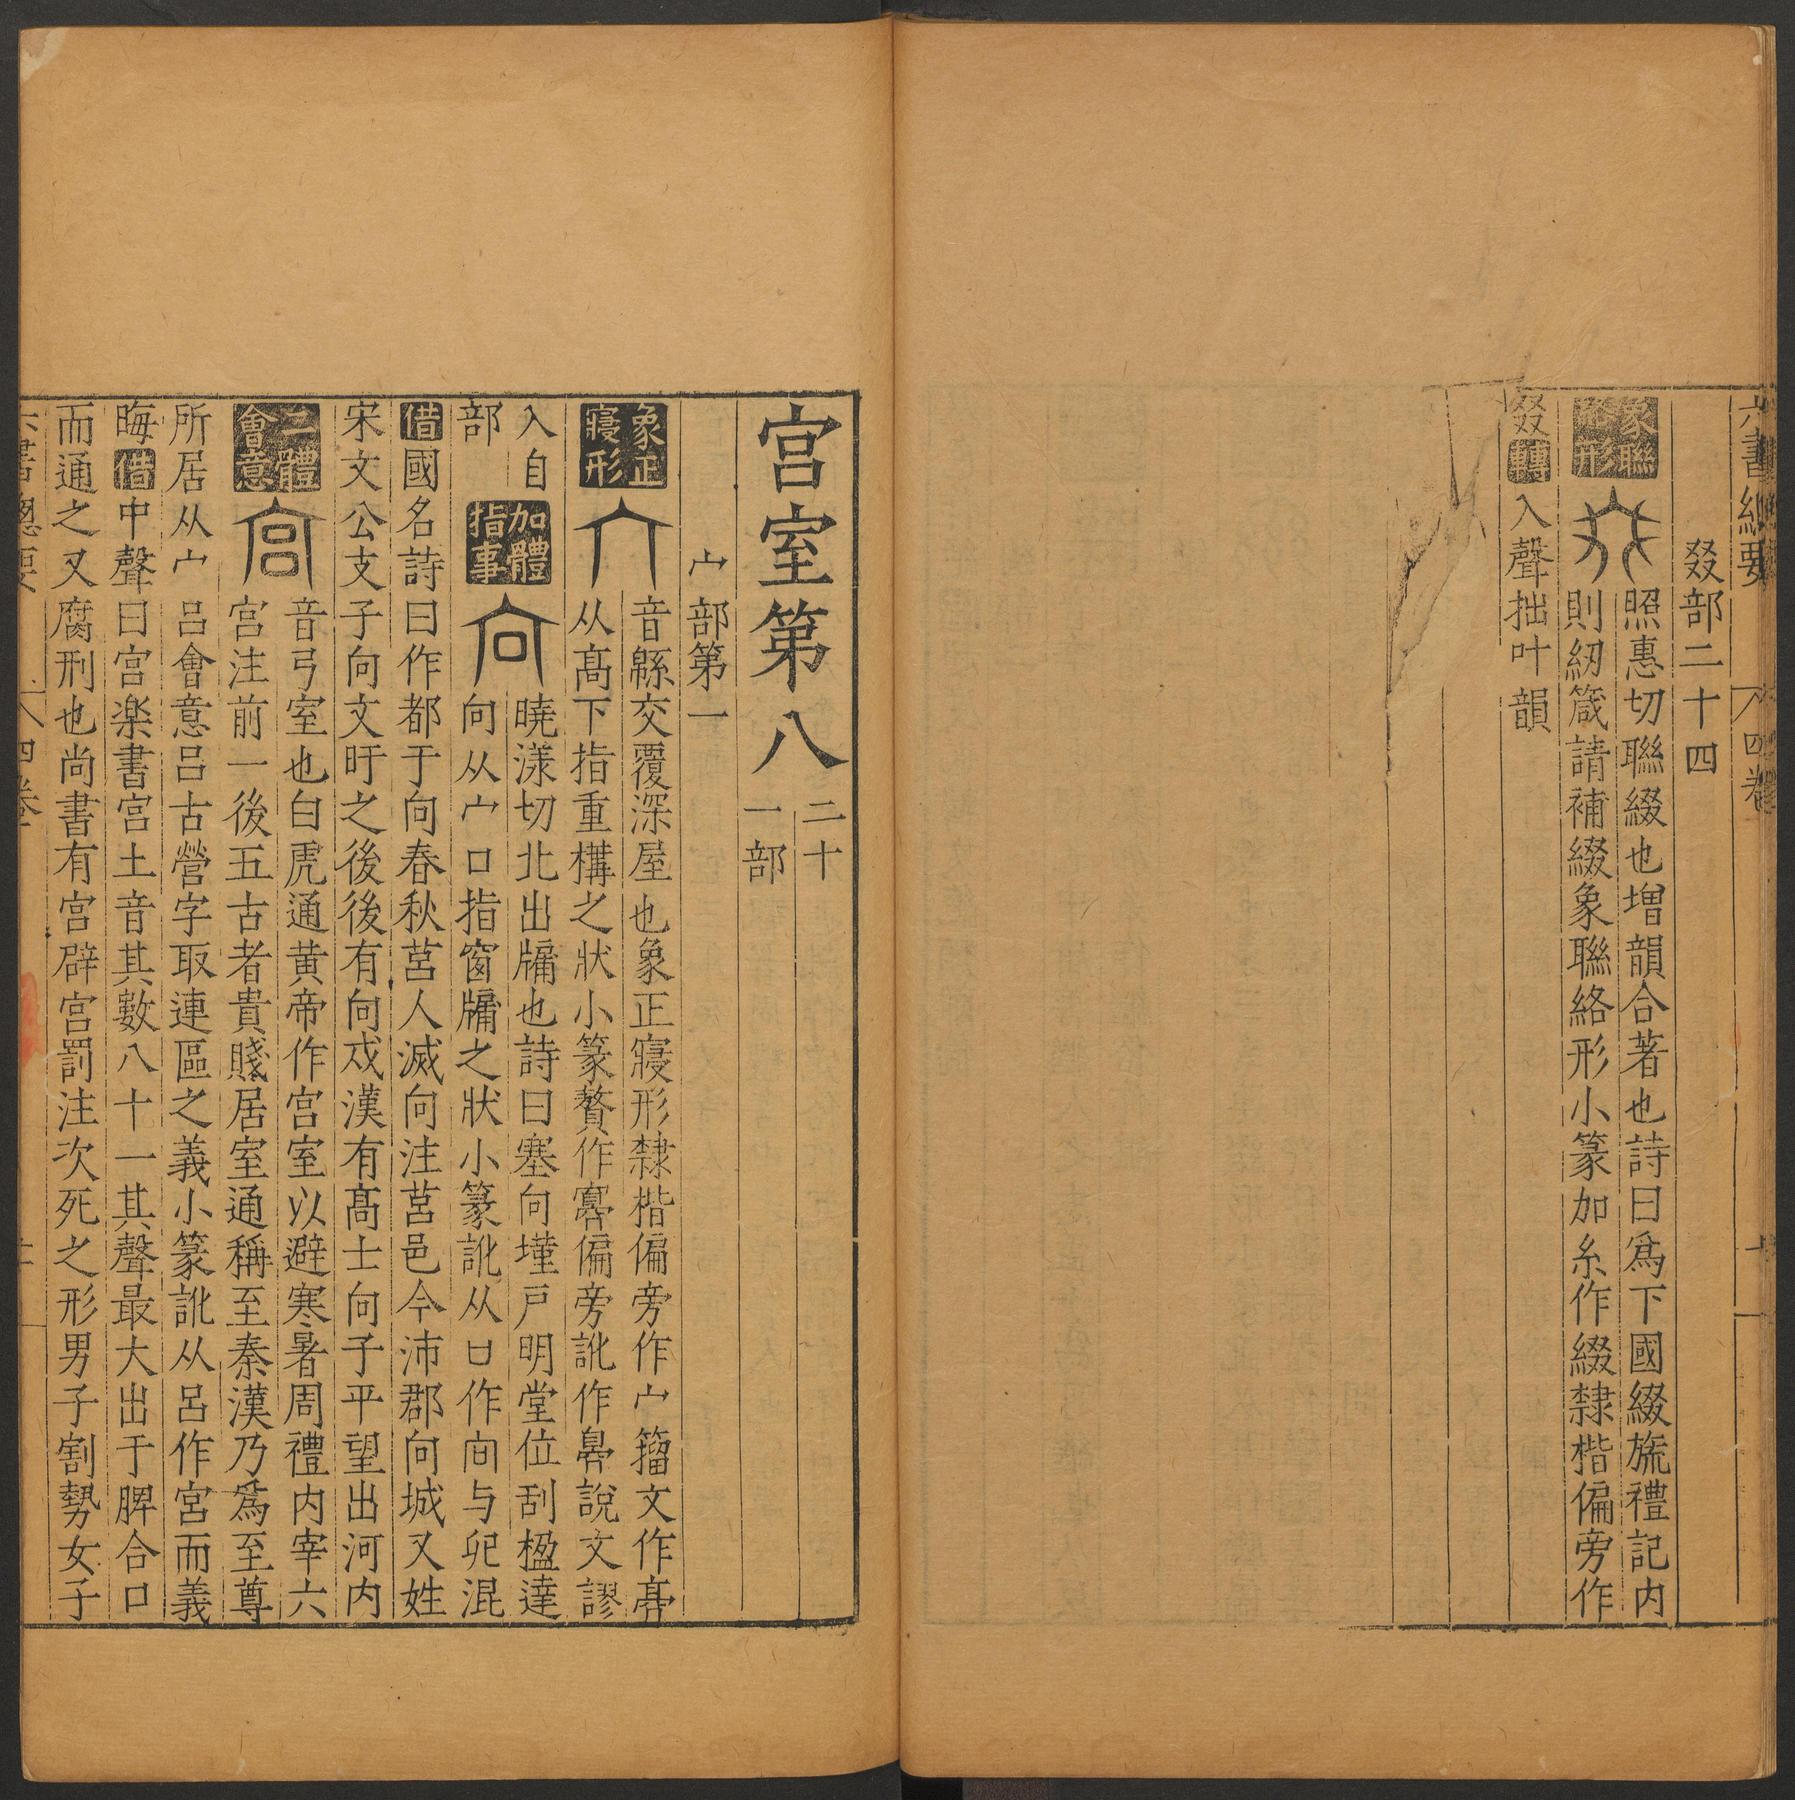 六書總要 四卷
叕部二十四
象聯綴形 照惠切聯綴也增韻合著也詩曰爲下國綴旒禮記内
則紉箴請補綴象聯絡形小篆加糸作綴隸楷偏旁作
叕轉入聲拙叶韻
宮室第八 二十一部
宀部第一
象正寢形 音緜交覆深屋也象正寢形隸楷偏旁作宀籀文作
从高下指重構之狀小篆贅作寡偏旁訛作說文謬
入自部
加體指事 曉漾切北出牖也詩曰塞向墐戸明堂位刮楹達
向从宀口指窗牖之狀小篆訛从口作向与卯混
借國名詩曰作都于向春秋莒人滅向注莒邑今沛郡向城又姓
宋文公支子向文盱之後後有向戍漢有髙士向子平望出河内
二體會意 音弓室也白虎通黄帝作宮室以避寒暑周禮内宰六
宮注前一後五古者貴賤居室通稱至秦漢乃爲至尊
所居从宀呂會意呂古營字取連區之義小篆訛从呂作宮而義
晦借中聲曰宮楽書宮土音其數八十一其聲最大出于脾合口
而通之又腐刑也尚書有宮辟宮罰注次死之形男子割勢女子
六書總要 四卷